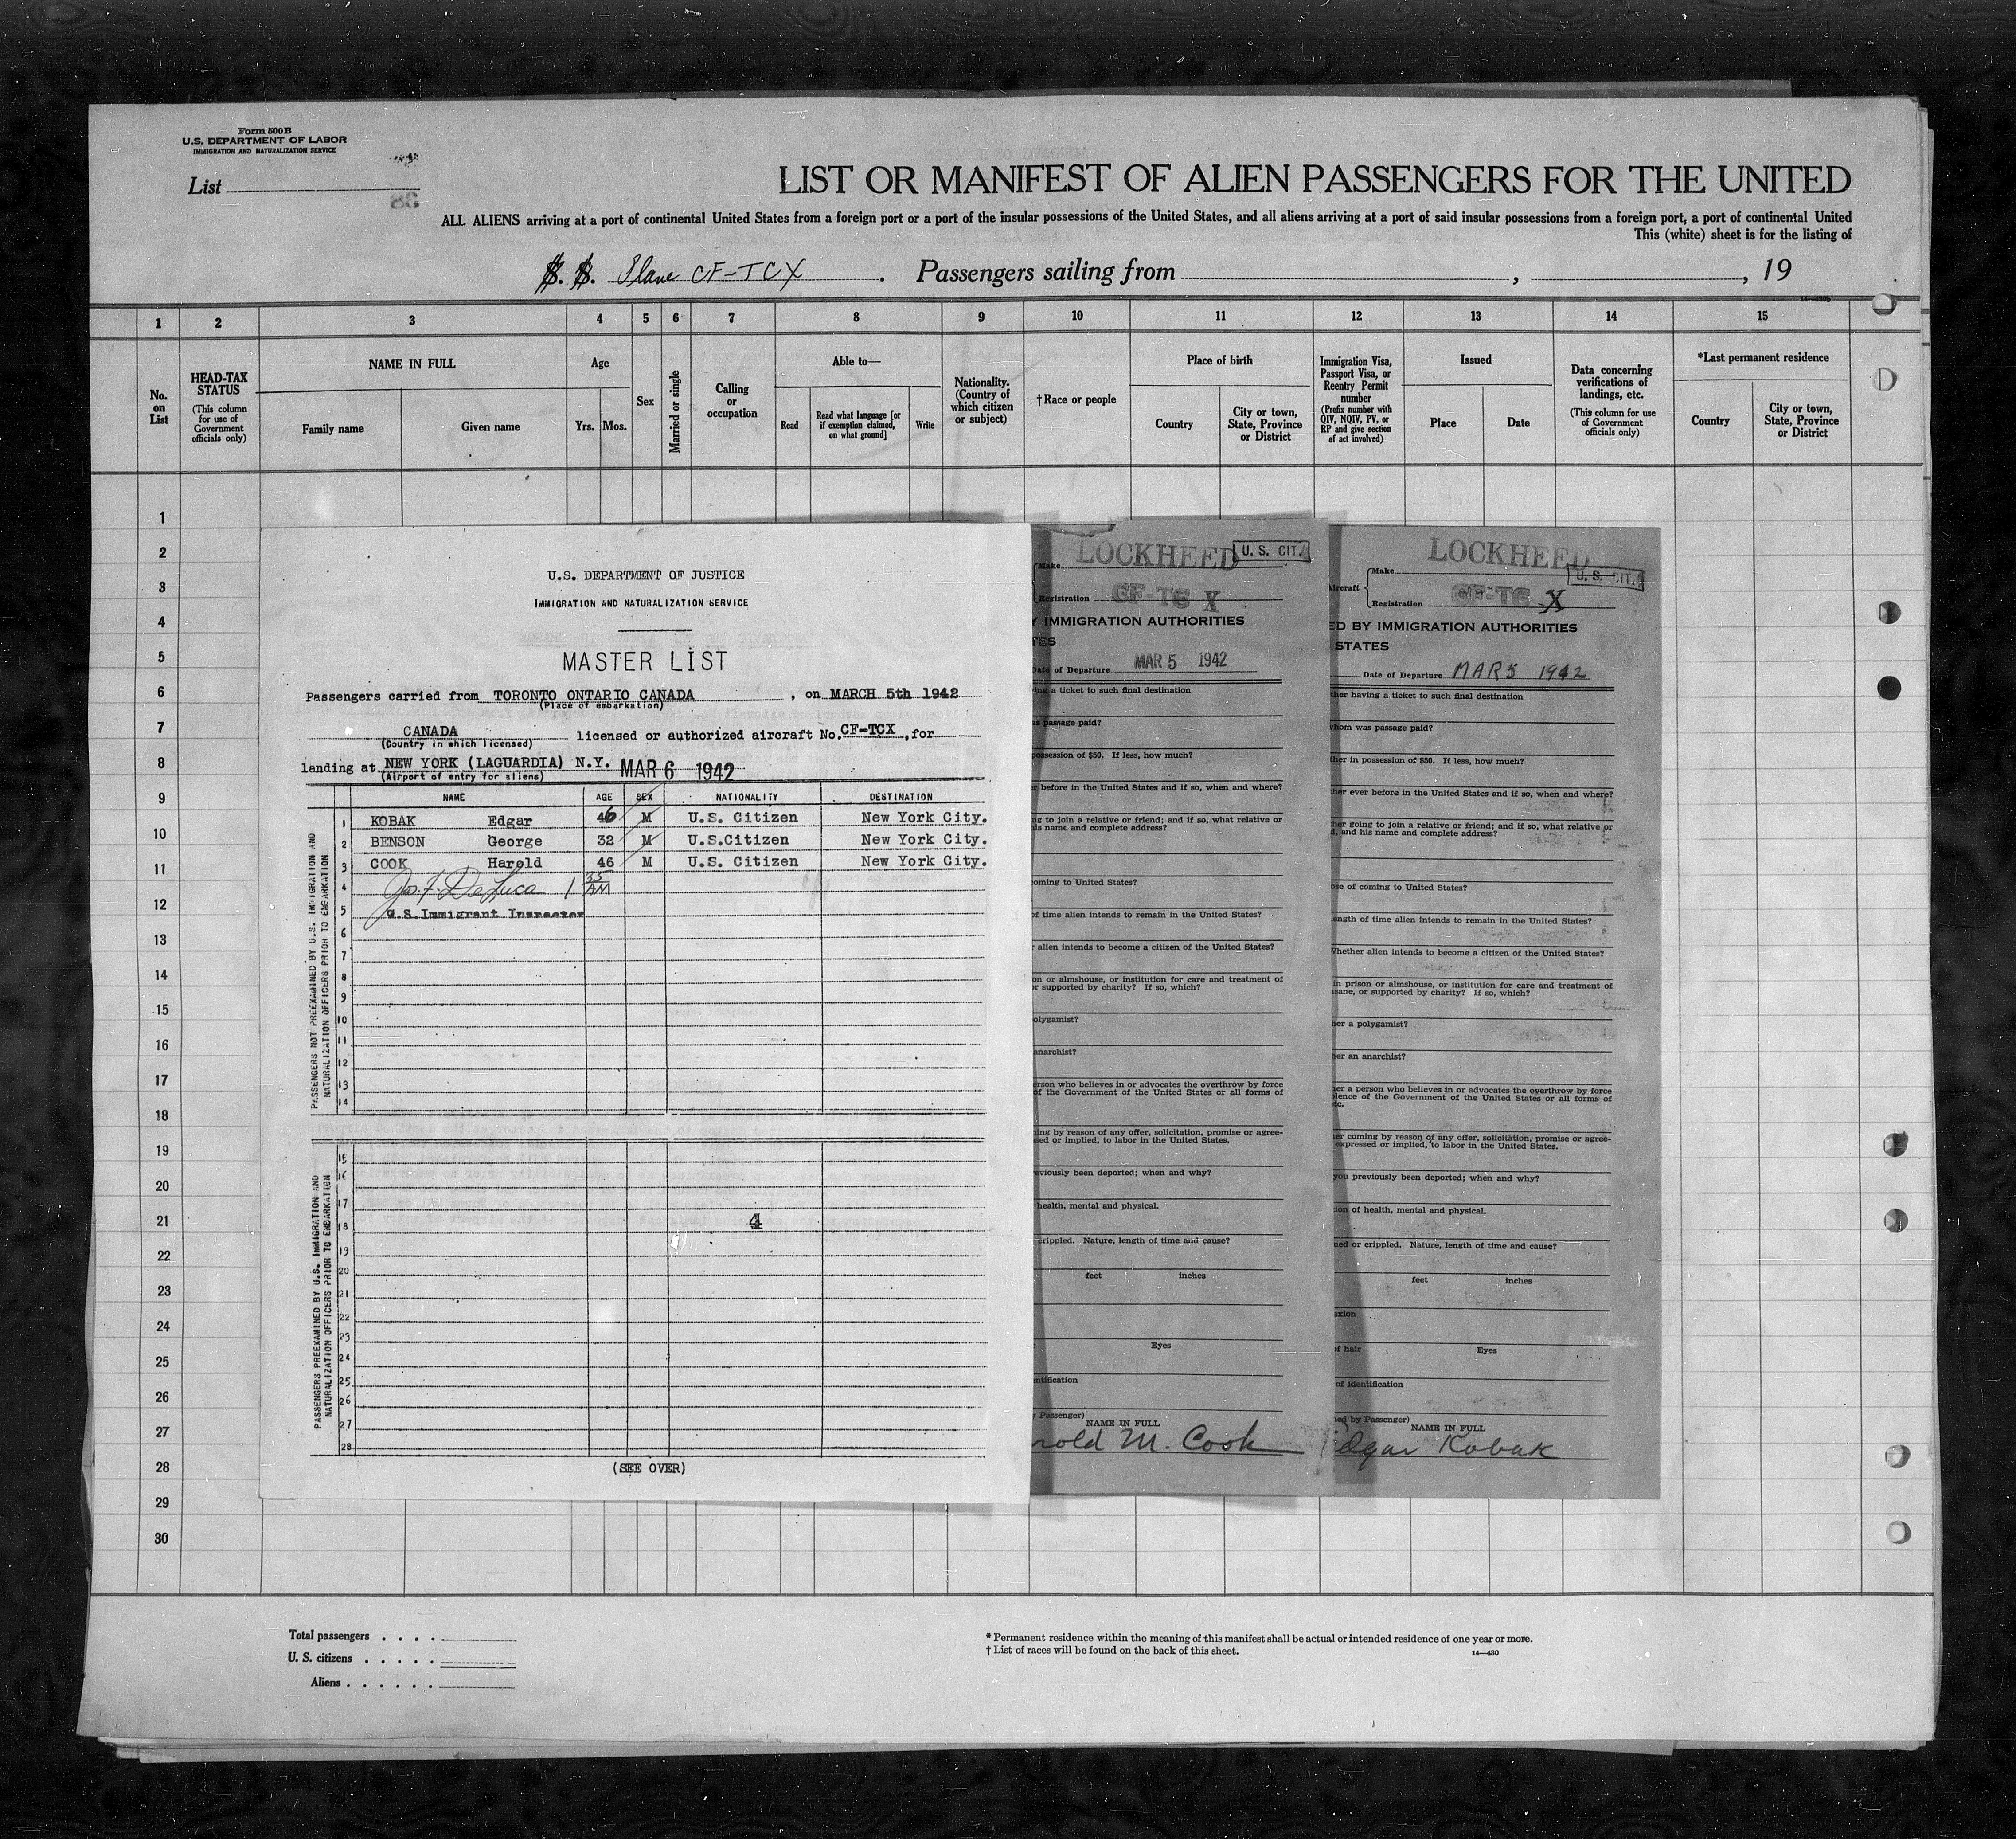 Form 500B
U.S. DEPARTMENT OF LABOR
IMMIGRATION AND NATURALIZATION SERVICE
List
38
LIST OR MANIFEST OF ALIEN PASSENGERS FOR THE UNITED
ALL ALIENS arriving at a port of continental United States from a foreign port or a port of the insular possessions of the United States, and all aliens arriving at a port of said insular possessions from a foreign port, a port of continental United
This (white) sheet is for the listing of
S. S. Plane CF-TCX . Passengers sailing from , , 19
1 2 3 4 5 6 7 8 9 10 11 12 13 14 15
No. on List
HEAD-TAX STATUS
(This column for use of Government officials only)
NAME IN FULL
Family name
Given name
Age
Yrs. Mos.
Sex
Married or single
Calling or occupation
Able to—
Read
Read what language [or if exemption claimed, on what ground]
Write
Nationality. (Country of which citizen or subject)
†Race or people
Place of birth
Country
City or town, State, Province or District
Immigration Visa, Passport Visa, or Reentry Permit number
(Prefix number with QIV, NQIV, PV, or RP and give section of act involved)
Issued
Place
Date
Data concerning verifications of landings, etc.
(This column for use of Government officials only)
*Last permanent residence
Country
City or town, State, Province or District
1
2
3
4
5
6
7
8
9
10
11
12
13
14
15
16
17
18
19
20
21
22
23
24
25
26
27
28
29
30
U.S. DEPARTMENT OF JUSTICE
IMMIGRATION AND NATURALIZATION SERVICE
MASTER LIST
Passengers carried from TORONTO ONTARIO CANADA , on MARCH 5th 1942
(Place of embarkation)
CANADA licensed or authorized aircraft No. CF-TCX , for
(Country in which licensed)
landing at NEW YORK (LAGUARDIA) N.Y. MAR 6 1942
(Airport of entry for aliens)
NAME AGE SEX NATIONALITY DESTINATION
1 KOBAK Edgar 46 M U.S. Citizen New York City.
2 BENSON George 32 M U.S.Citizen New York City.
3 COOK Harold 46 M U.S. Citizen New York City.
4 Jos. F. DeLuca 1 35 AM
5 U.S.Immigrant Inspector
6
7
8
9
10
11
12
13
14
PASSENGERS NOT PREEXAMINED BY U.S. IMMIGRATION AND NATURALIZATION OFFICERS PRIOR TO EMBARKATION
15
16
17
18 4
19
20
21
22
23
24
25
26
27
28
PASSENGERS PREEXAMINED BY U.S. IMMIGRATION AND NATURALIZATION OFFICERS PRIOR TO EMBARKATION
(SEE OVER)
LOCKHEED U. S. CIT.
Make
Registration CF-TC X
Y IMMIGRATION AUTHORITIES
TES
Date of Departure MAR 5 1942
ing a ticket to such final destination
as passage paid?
ossession of $50. If less, how much?
r before in the United States and if so, when and where?
ng to join a relative or friend; and if so, what relative or
his name and complete address?
oming to United States?
of time alien intends to remain in the United States?
r alien intends to become a citizen of the United States?
on or almshouse, or institution for care and treatment of
r supported by charity? If so, which?
olygamist?
anarchist?
erson who believes in or advocates the overthrow by force
of the Government of the United States or all forms of
ing by reason of any offer, solicitation, promise or agree-
sed or implied, to labor in the United States.
eviously been deported; when and why?
health, mental and physical.
crippled. Nature, length of time and cause?
feet inches
Eyes
ntification
y Passenger)
NAME IN FULL
rold M. Cook
LOCKHEED U. S. CIT.
Aircraft
Make
Registration CF-TC X
ED BY IMMIGRATION AUTHORITIES
STATES
Date of Departure MAR 5 1942
ther having a ticket to such final destination
whom was passage paid?
ther in possession of $50. If less, how much?
ther ever before in the United States and if so, when and where?
her going to join a relative or friend; and if so, what relative or
d, and his name and complete address?
ose of coming to United States?
ength of time alien intends to remain in the United States?
Whether alien intends to become a citizen of the United States?
in prison or almshouse, or institution for care and treatment of
sane, or supported by charity? If so, which?
her a polygamist?
her an anarchist?
her a person who believes in or advocates the overthrow by force
lence of the Government of the United States or all forms of
tc.
er coming by reason of any offer, solicitation, promise or agree-
expressed or implied, to labor in the United States.
you previously been deported; when and why?
ion of health, mental and physical.
ned or crippled. Nature, length of time and cause?
feet inches
exion
of hair Eyes
of identification
ned by Passenger)
NAME IN FULL
Edgar Kobak
Total passengers
U. S. citizens
Aliens
* Permanent residence within the meaning of this manifest shall be actual or intended residence of one year or more.
† List of races will be found on the back of this sheet.
14—430